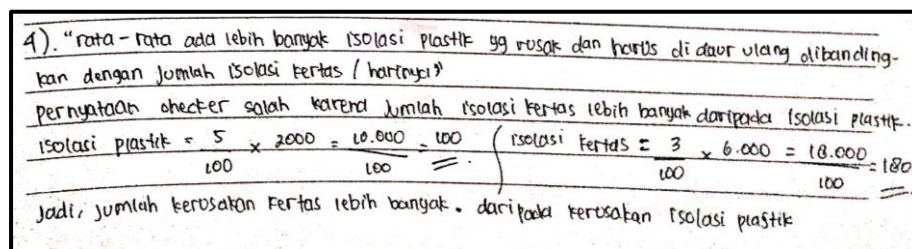 4). "rata-rata ada lebih banyak isolasi plastik yg rusak dan harus di daur ulang dibanding-
kan dengan jumlah isolasi kertas / harinya"
pernyataan checker salah karena jumlah isolasi kertas lebih banyak daripada isolasi plastik.
isolasi plastik = 5/100 × 2000 = 10.000/100 = 100 isolasi kertas = 3/100 × 6.000 = 18.000/100 = 180
Jadi, jumlah kerusakan kertas lebih banyak. daripada kerusakan isolasi plastik